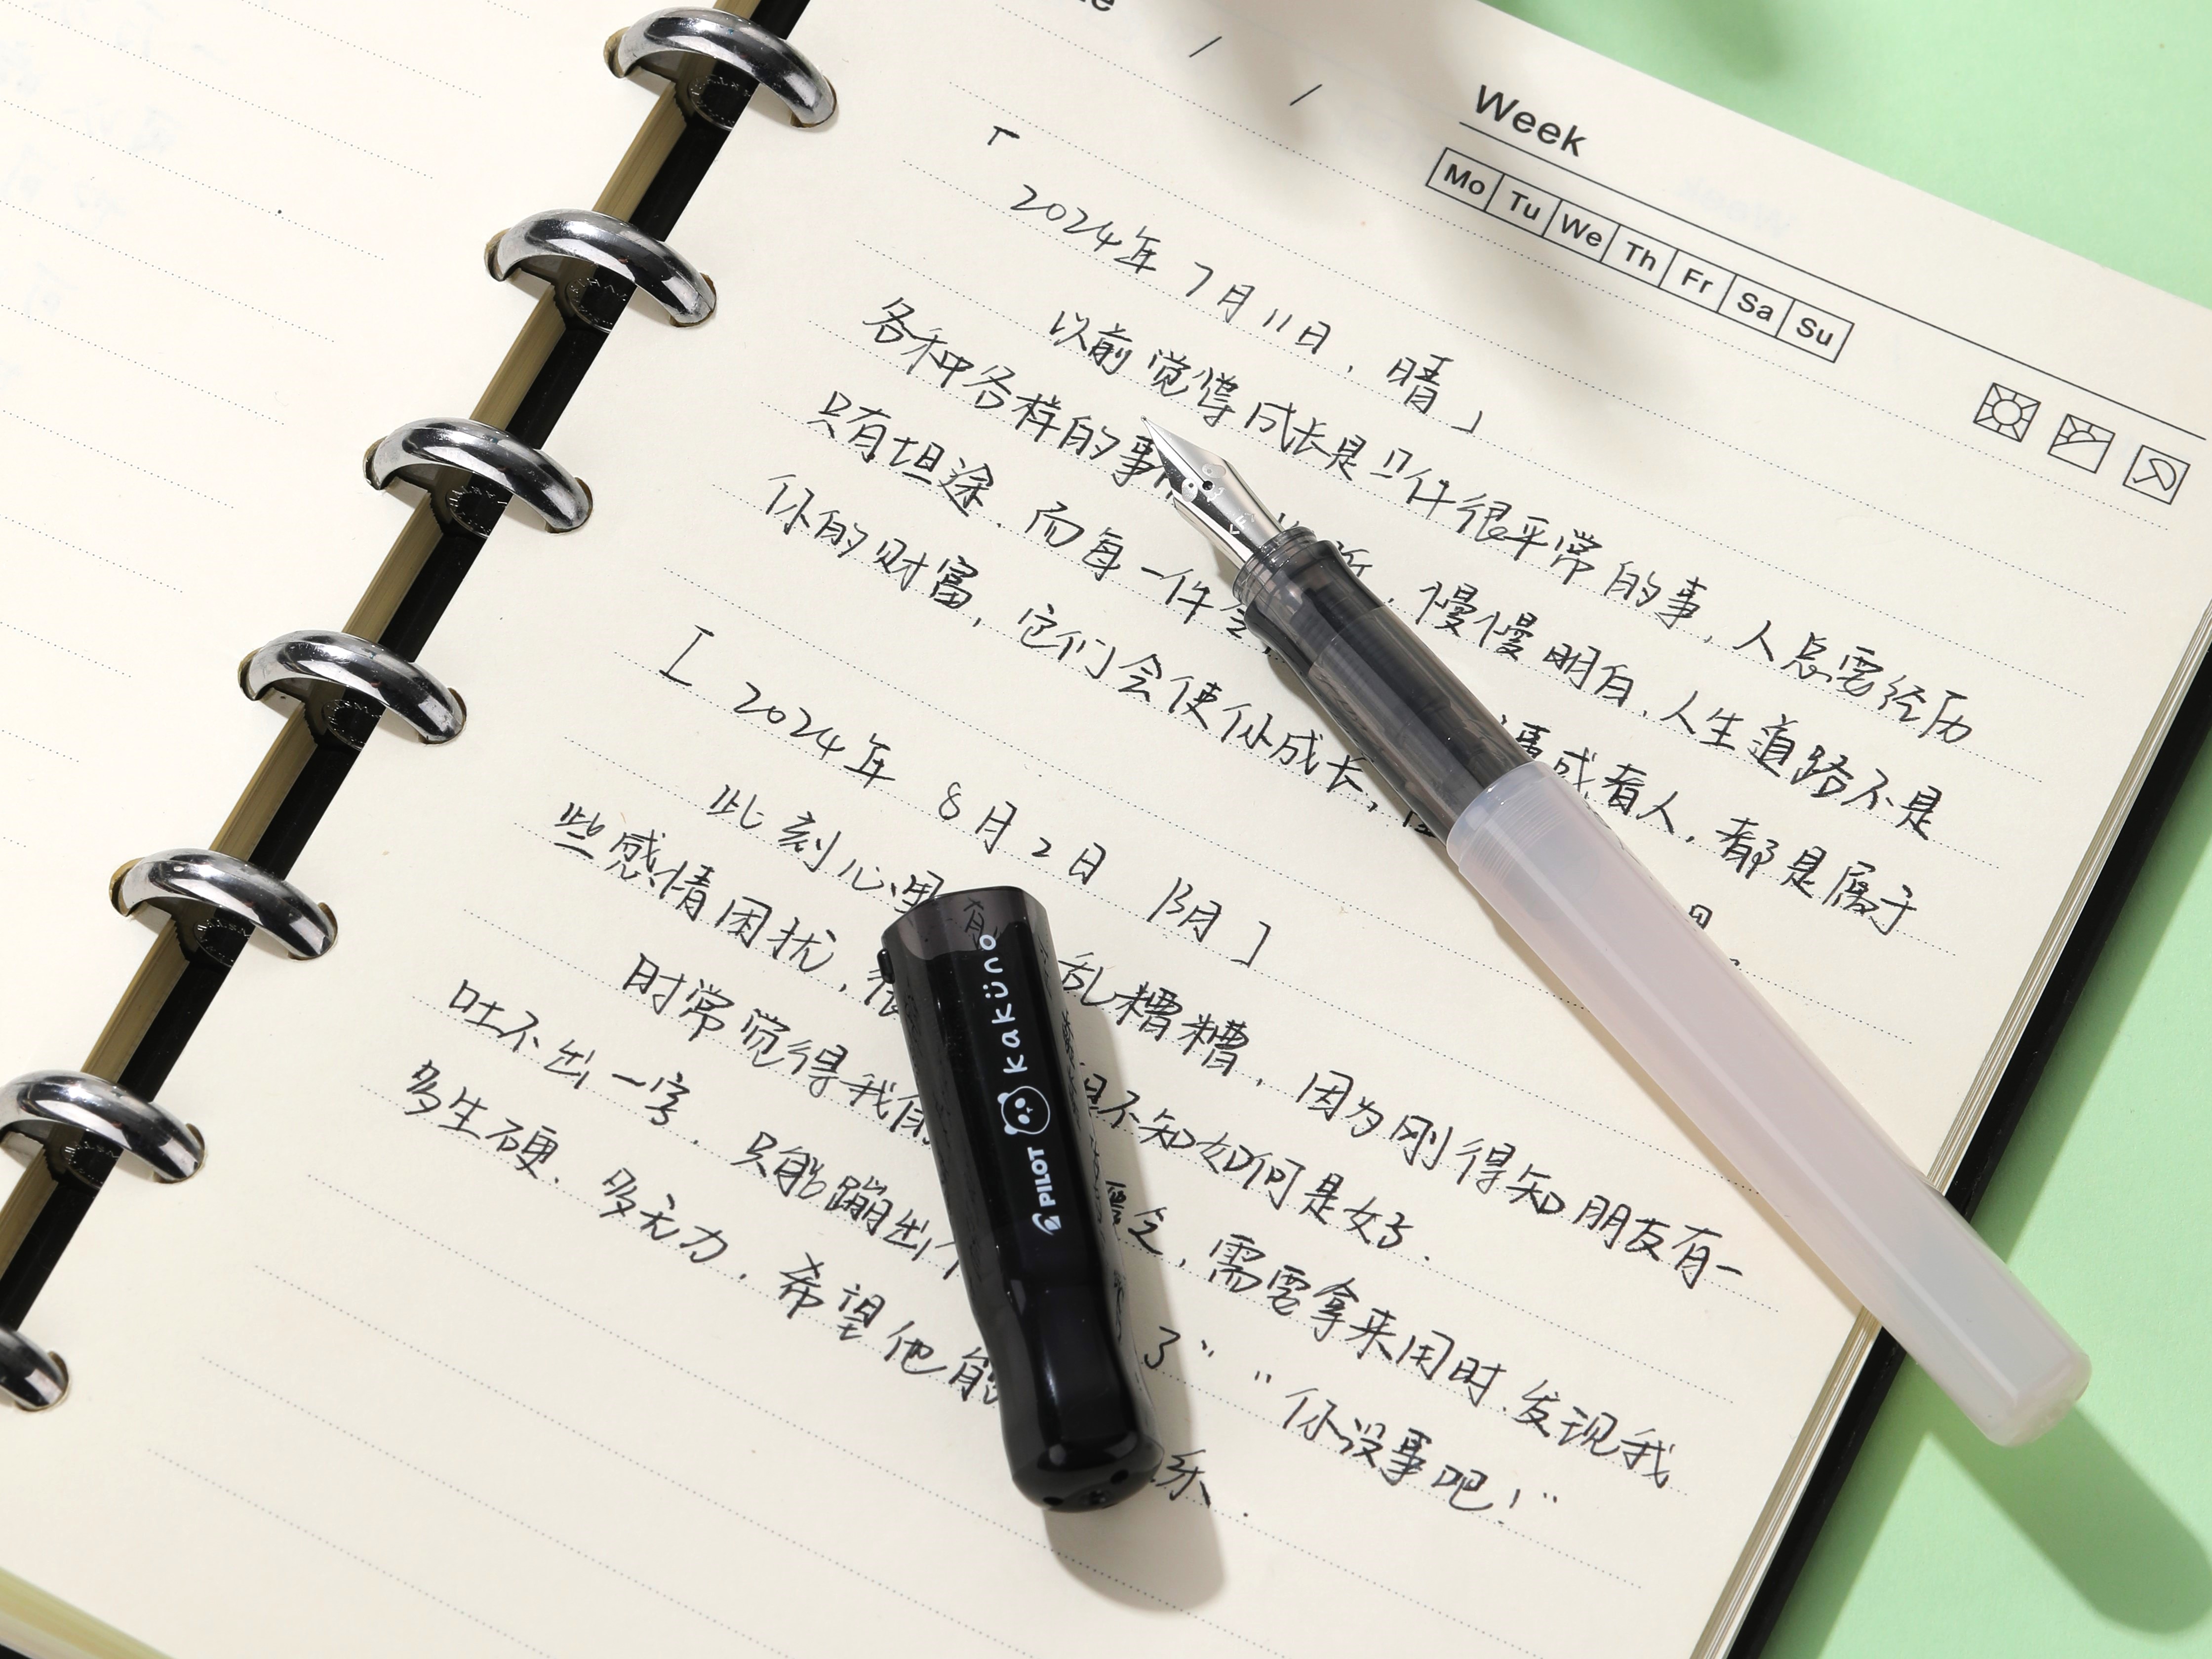 Week
Mo Tu We Th Fr Sa Su
「2024年7月11日,晴」
以前觉得成长是几件很平常的事,人总要经历
各种各样的事 慢慢明白,人生道路不是
只有坦途,而每一件 事或者人,都是属于
你的财富,它们会使你成长,
[2024年8月2日 阴]
此刻心里有 乱糟糟,因为刚得知朋友有一
些感情困扰, 但不知如何是好.
时常觉得我 ,需要拿来用时,发现我
吐不出一字,只能蹦出个 了" "你没事吧!"
多生硬,多无力,希望他能 乐.
PILOT kaküno